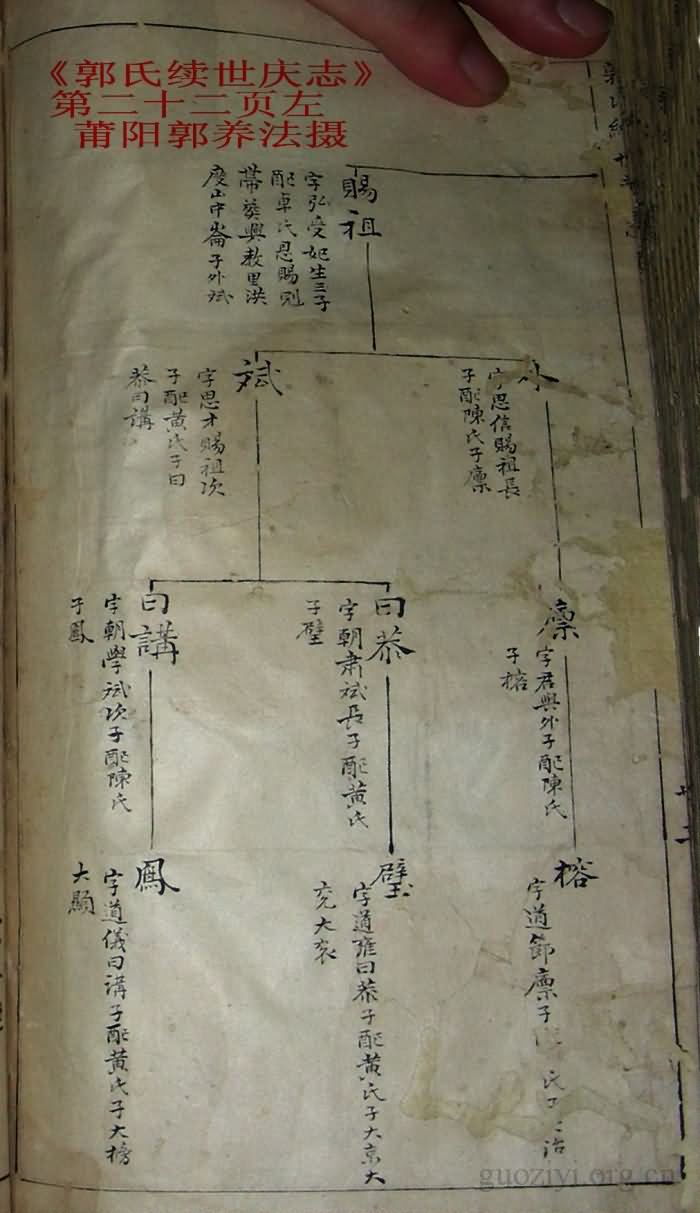 《郭氏续世庆志》
第二十二页左
莆阳郭养法摄
賜祖
字弘受妣生三子
配卓氏恩賜冠
帶葵興教里洪
度山中崙子外斌
外
字思信賜祖長
子配陳氏子廪
斌
字思才賜祖次
子配黄氏子曰
恭曰講
廪
字君與外子配陳氏
子榕
曰恭
字朝肅斌長子配黄氏
子璧
曰講
字朝學斌次子配陳氏
子鳳
榕
字道節廪子 氏子 治
璧
字道雍曰恭子配黄氏子大京大
兖大衮
鳳
字道儀曰講子配黄氏子大榜
大顯
guoziyi.org.cn